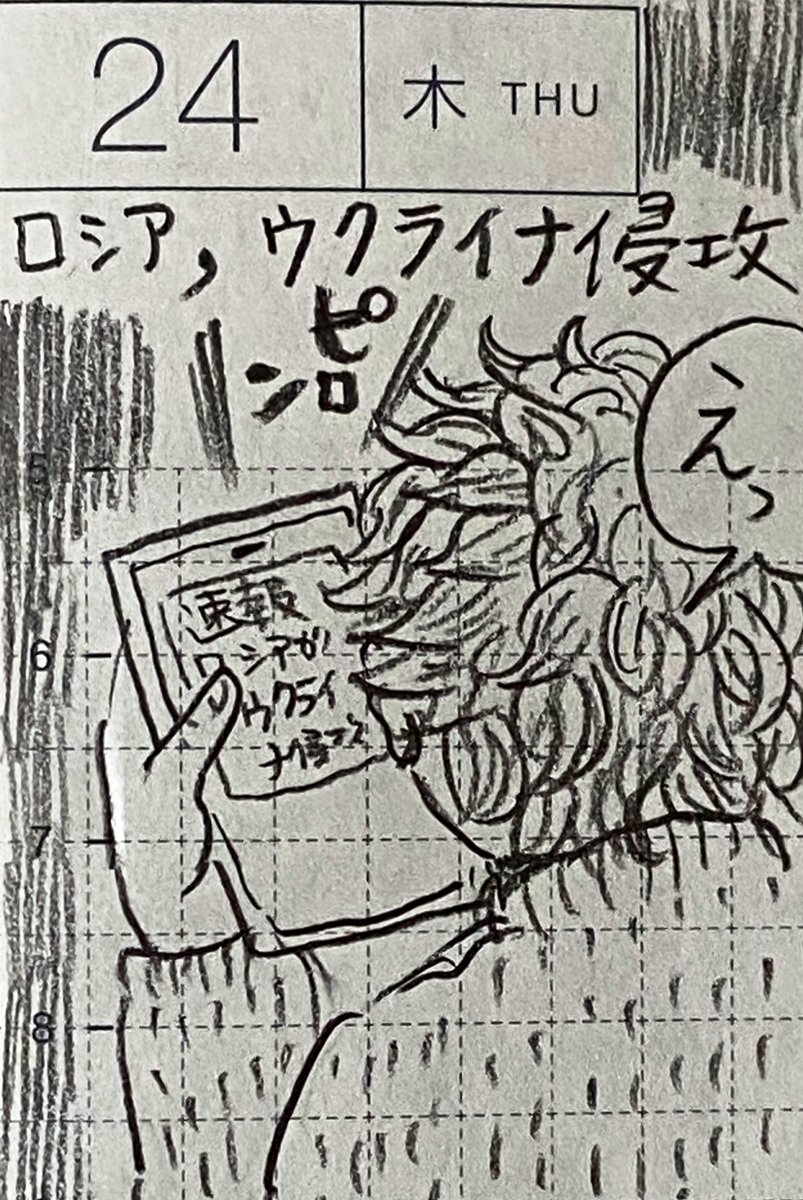 24 木 THU
ロシア,ウクライナ侵攻
ピ
ロン
えっ
速報
ロシアが
ウクライ
ナ侵攻
5
6
7
8